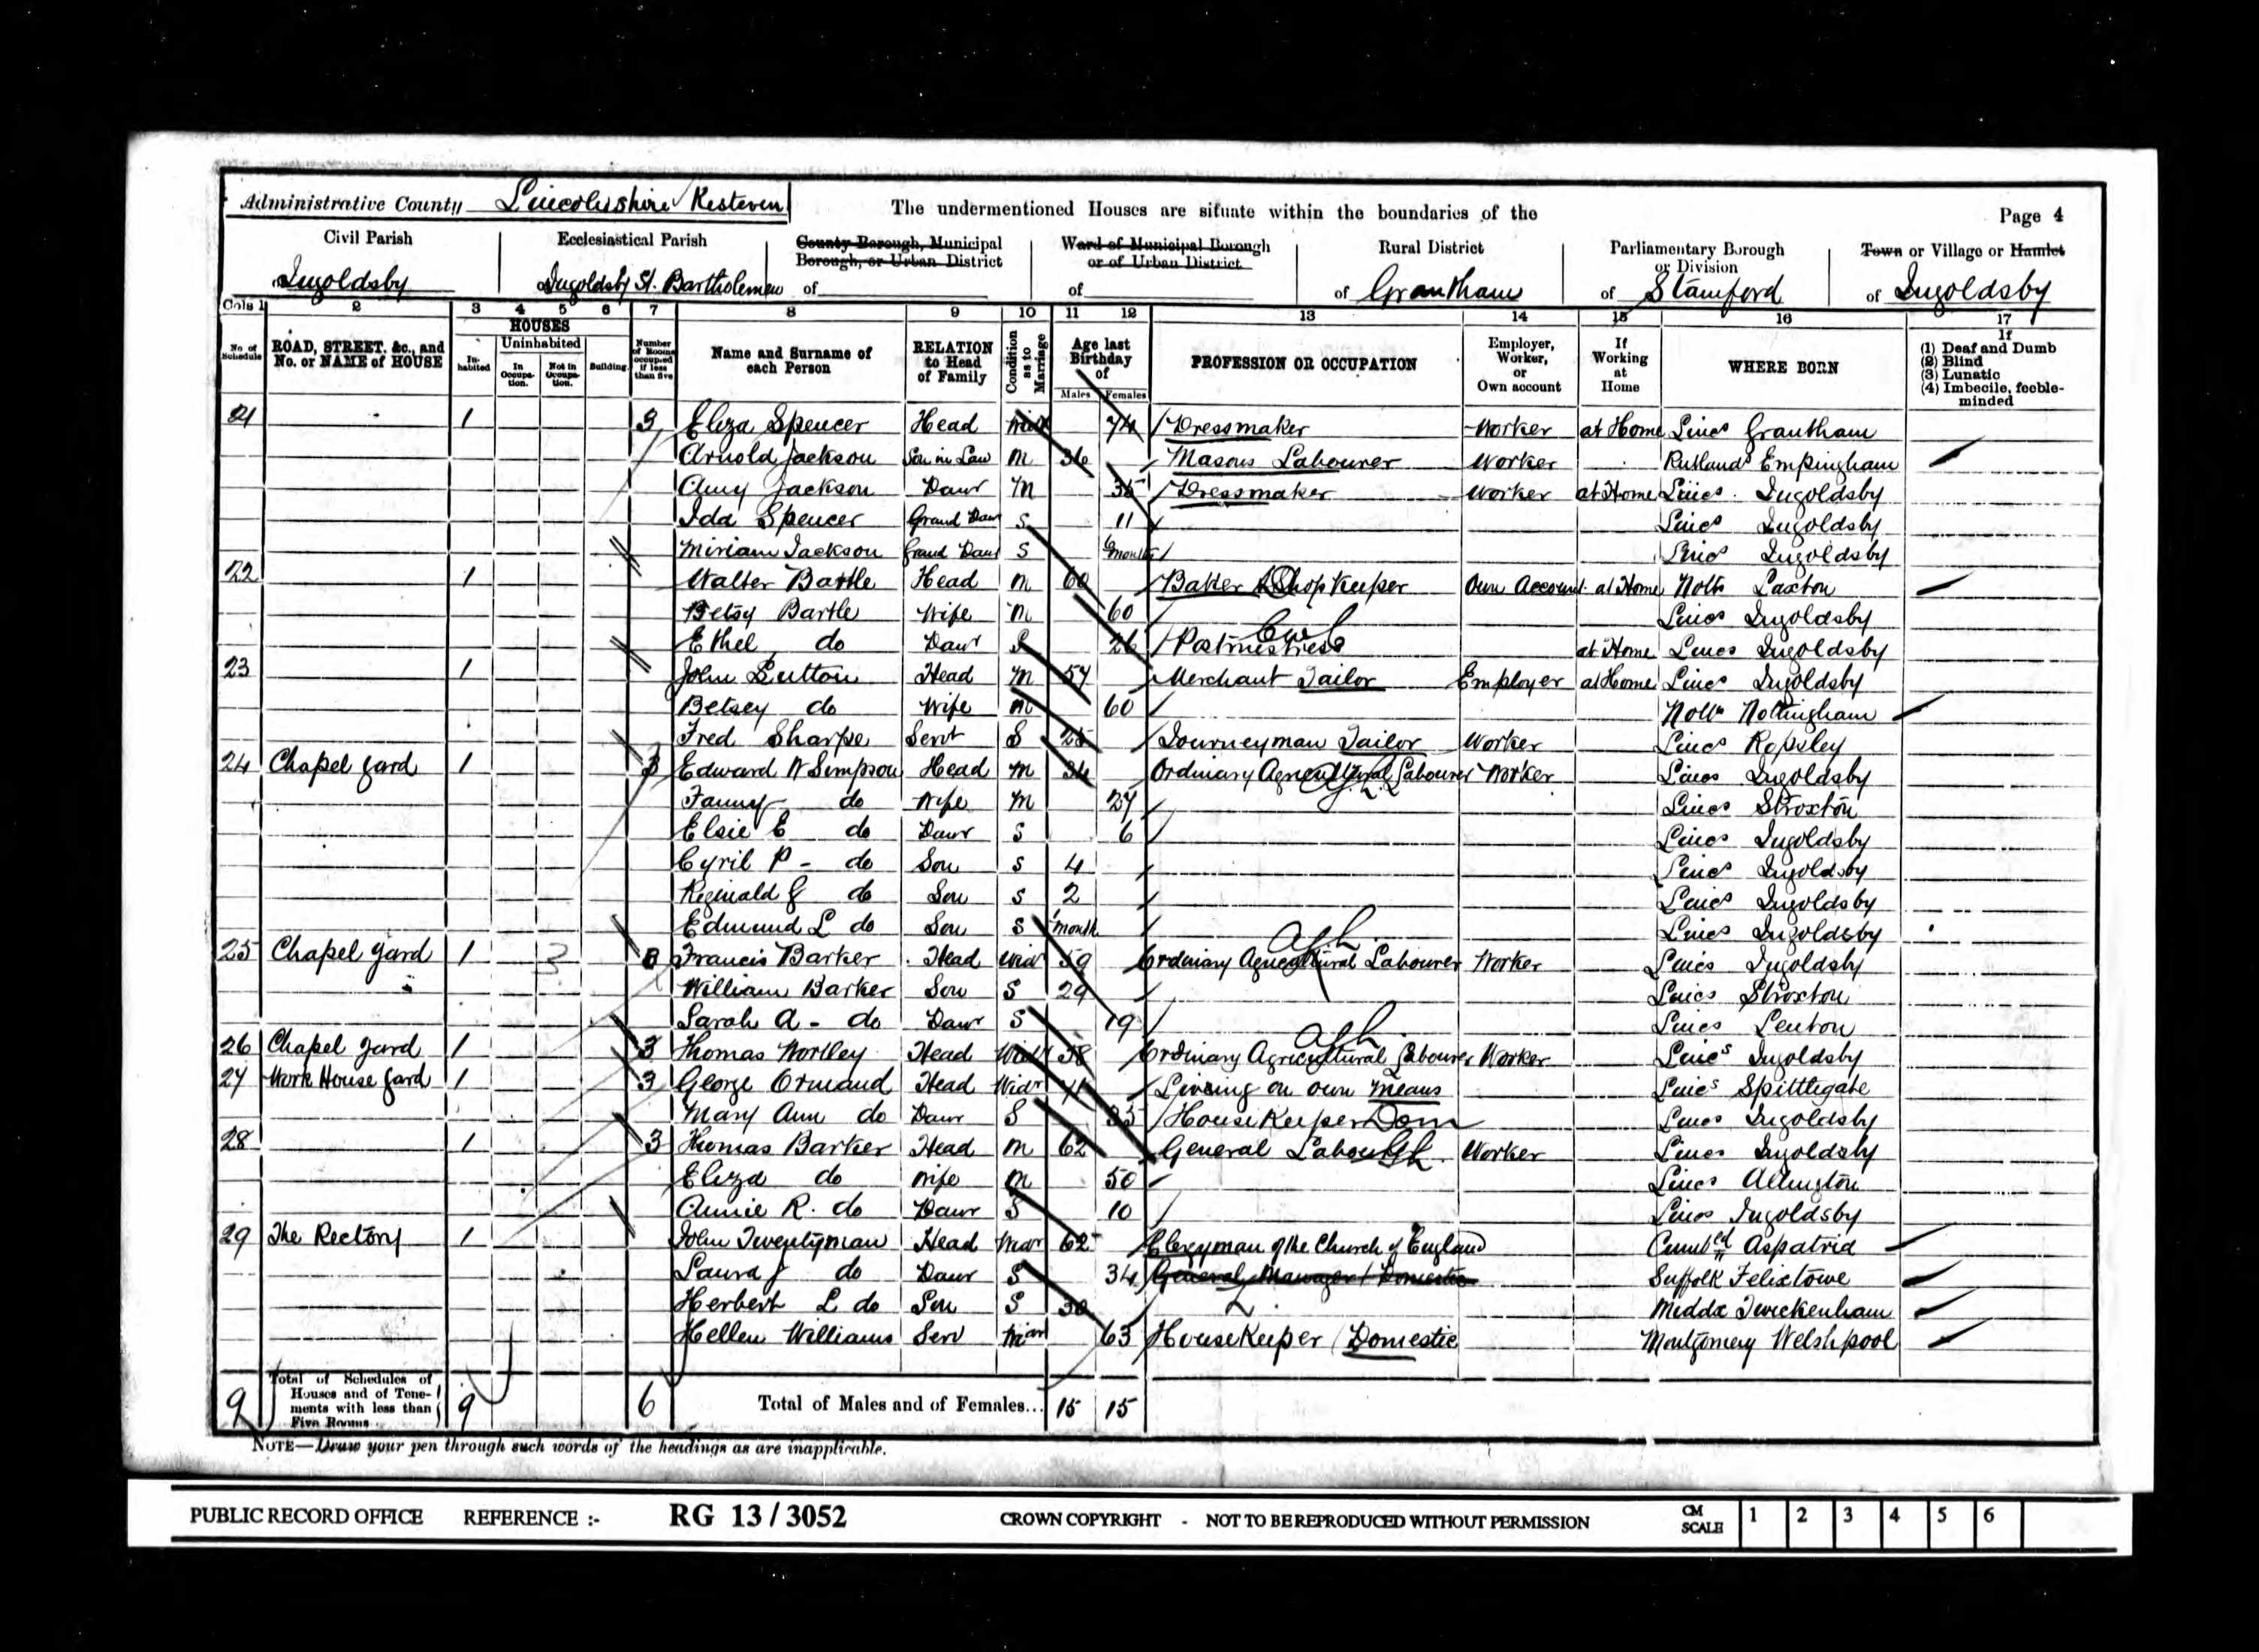 Administrative County Lincolnshire Kesteven The undermentioned Houses are situate within the boundaries of the Page 4
Civil Parish Ecclesiastical Parish County Borough, Municipal Borough, or Urban District Ward of Municipal Borough or of Urban District Rural District Parliamentary Borough or Division Town or Village or Hamlet
Ingoldsby Ingoldsby St. Bartholemew of of of Grantham of Stamford of Ingoldsby
Cols 1 2 3 4 5 6 7 8 9 10 11 12 13 14 15 16 17
No of Schedule ROAD, STREET, &c., and No. or NAME of HOUSE HOUSES Inhabited Uninhabited In Occupation. Not in Occupation. Building Number of Rooms occupied if less than five Name and Surname of each Person RELATION to Head of Family Condition as to Marriage Age last Birthday of Males Females PROFESSION OR OCCUPATION Employer, Worker, or Own account If Working at Home WHERE BORN If (1) Deaf and Dumb (2) Blind (3) Lunatic (4) Imbecile, feeble-minded
21 1 3 Eliza Spencer Head Wid 74 Dressmaker Worker at Home Lincs Grantham
Arnold Jackson Son in Law M 36 Masons Labourer Worker Rutlands Empingham
Amy Jackson Daur M 35 Dressmaker Worker at Home Lincs Ingoldsby
Ida Spencer Grand Daur S 11 Lincs Ingoldsby
Miriam Jackson Grand Daur S 6 months Lincs Ingoldsby
22 1 Walter Bartle Head M 60 Baker & Shop Keeper Own Account at Home Notts Laxton
Betsy Bartle Wife M 60 Lincs Ingoldsby
Ethel do Daur S 26 Postmistress at Home Lincs Ingoldsby
23 1 John Sutton Head M 57 Merchant Tailor Employer at Home Lincs Ingoldsby
Betsey do Wife M 60 Notts Nottingham
Fred Sharpe Servt S 25 Journeyman Tailor Worker Lincs Ropsley
24 Chapel Yard 1 3 Edward W Simpson Head M 34 Ordinary Agricultural Labourer Worker Lincs Ingoldsby
Fanny do Wife M 27 Lincs Stroxton
Elsie E do Daur S 6 Lincs Ingoldsby
Cyril P - do Son S 4 Lincs Ingoldsby
Reginald G do Son S 2 Lincs Ingoldsby
Edmund L do Son S 1 month Lincs Ingoldsby
25 Chapel Yard 1 3 Francis Barker Head Widr 59 Ordinary Agricultural Labourer Worker Lincs Ingoldsby
William Barker Son S 29 Lincs Stroxton
Sarah A - do Daur S 19 Lincs Lenton
26 Chapel Yard 1 3 Thomas Wortley Head Widr 58 Ordinary Agricultural Labourer Worker Lincs Ingoldsby
27 Work House Yard 1 3 George Ormand Head Widr 71 Living on own means Lincs Spittlegate
Mary Ann do Daur S 35 House Keeper Dom Lincs Ingoldsby
28 1 3 Thomas Barker Head M 62 General Labourer Worker Lincs Ingoldsby
Eliza do Wife M 50 Lincs Allington
Annie R. do Daur S 10 Lincs Ingoldsby
29 The Rectory 1 John Twentyman Head Mar 62 Clergyman of the Church of England Cumbld Aspatria
Laura J do Daur S 34 General Manager / Domestic Suffolk Felixtowe
Herbert L do Son S 30 Middx Twickenham
Hellen Williams Serv 63 House Keeper / Domestic Montgomery Welshpool
9 Total of Schedules of Houses and of Tenements with less than Five Rooms 9 6 Total of Males and of Females... 15 15
NOTE—Draw your pen through such words of the headings as are inapplicable.
PUBLIC RECORD OFFICE REFERENCE :- RG 13 / 3052 CROWN COPYRIGHT - NOT TO BE REPRODUCED WITHOUT PERMISSION CM SCALE 1 2 3 4 5 6